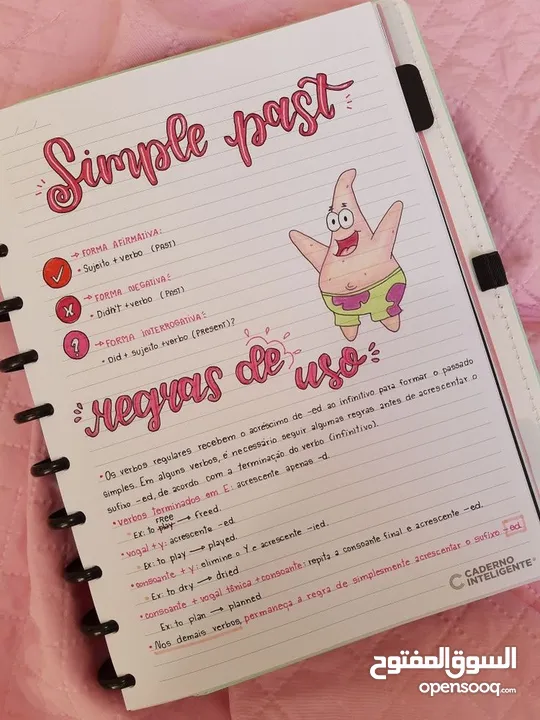 Simple past
→ FORMA AFIRMATIVA:
• Sujeito + verbo (PAST)
→ FORMA NEGATIVA:
• Didn't + verbo (Past)
→ FORMA INTERROGATIVA:
• Did + sujeito + verbo (present)?
regras de uso
• Os verbos regulares recebem o acréscimo de -ed ao infinitivo para formar o passado
simples. Em alguns verbos, é necessário seguir algumas regras antes de acrescentar o
sufixo -ed, de acordo com a terminação do verbo (infinitivo).
• verbos terminados em E: acrescente apenas -d.
Ex: to free play → freed.
• vogal + y: acrescente -ed.
Ex: to play → played.
• consoante + y: elimine o Y e acrescente -ied.
Ex: to dry → dried
• consoante + vogal tônica + consoante: repita a consoante final e acrescente -ed.
Ex: to plan → planned
• Nos demais verbos, permaneça a regra de simplesmente acrescentar o sufixo -ed.
CADERNO
INTELIGENTE®
السوق المفتوح
opensooq.com